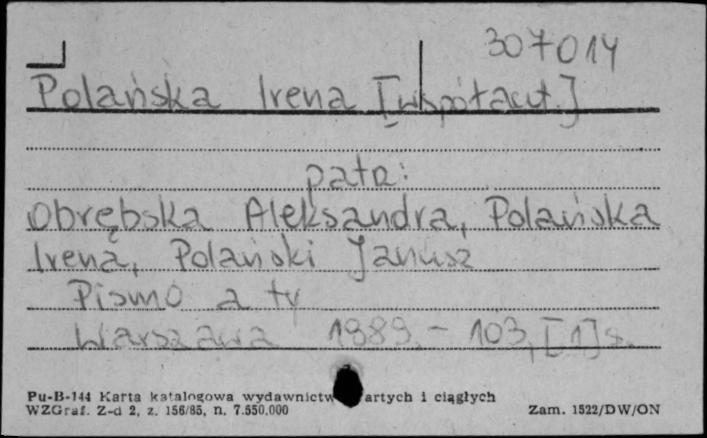 307014
Polańska Irena [współaut.]
patrz:
Obrębska Aleksandra, Polańska
Irena, Polański Janusz
Pismo a ty
Warszawa 1989. - 103, [1] s.
Pu-B-144 Karta katalogowa wydawnictw artych i ciągłych
WZGraf. Z-d 2, z. 156/85, n. 7.550.000 Zam. 1522/DW/ON